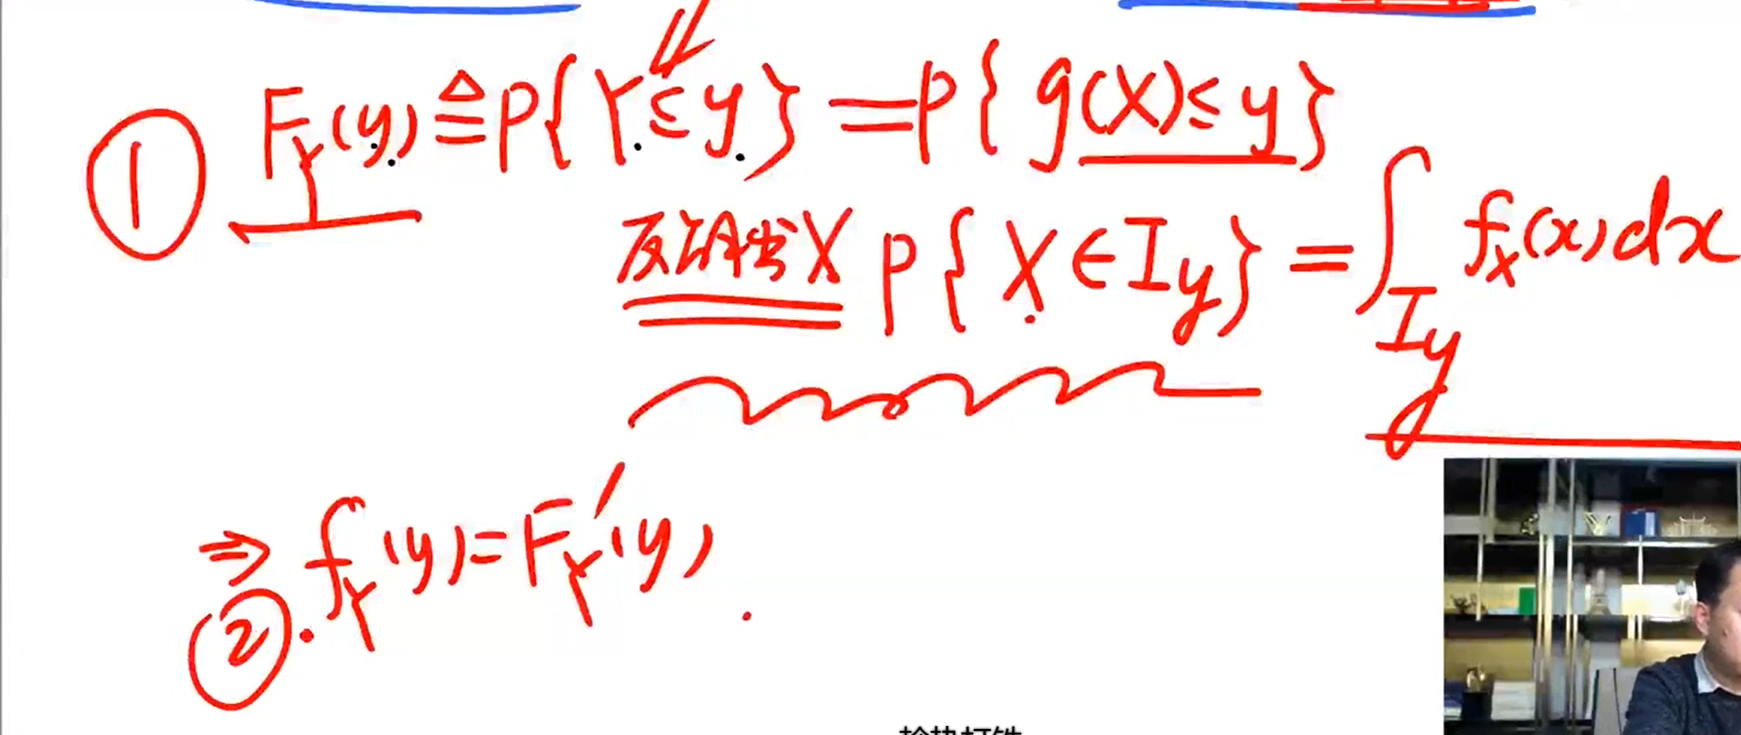 ① F_Y(y) ≜ P{Y ≤ y} = P{g(X) ≤ y}
反解出X P{X ∈ I_y} = ∫_{I_y} f_X(x)dx
⇒ f_Y(y) = F_Y'(y)
②.